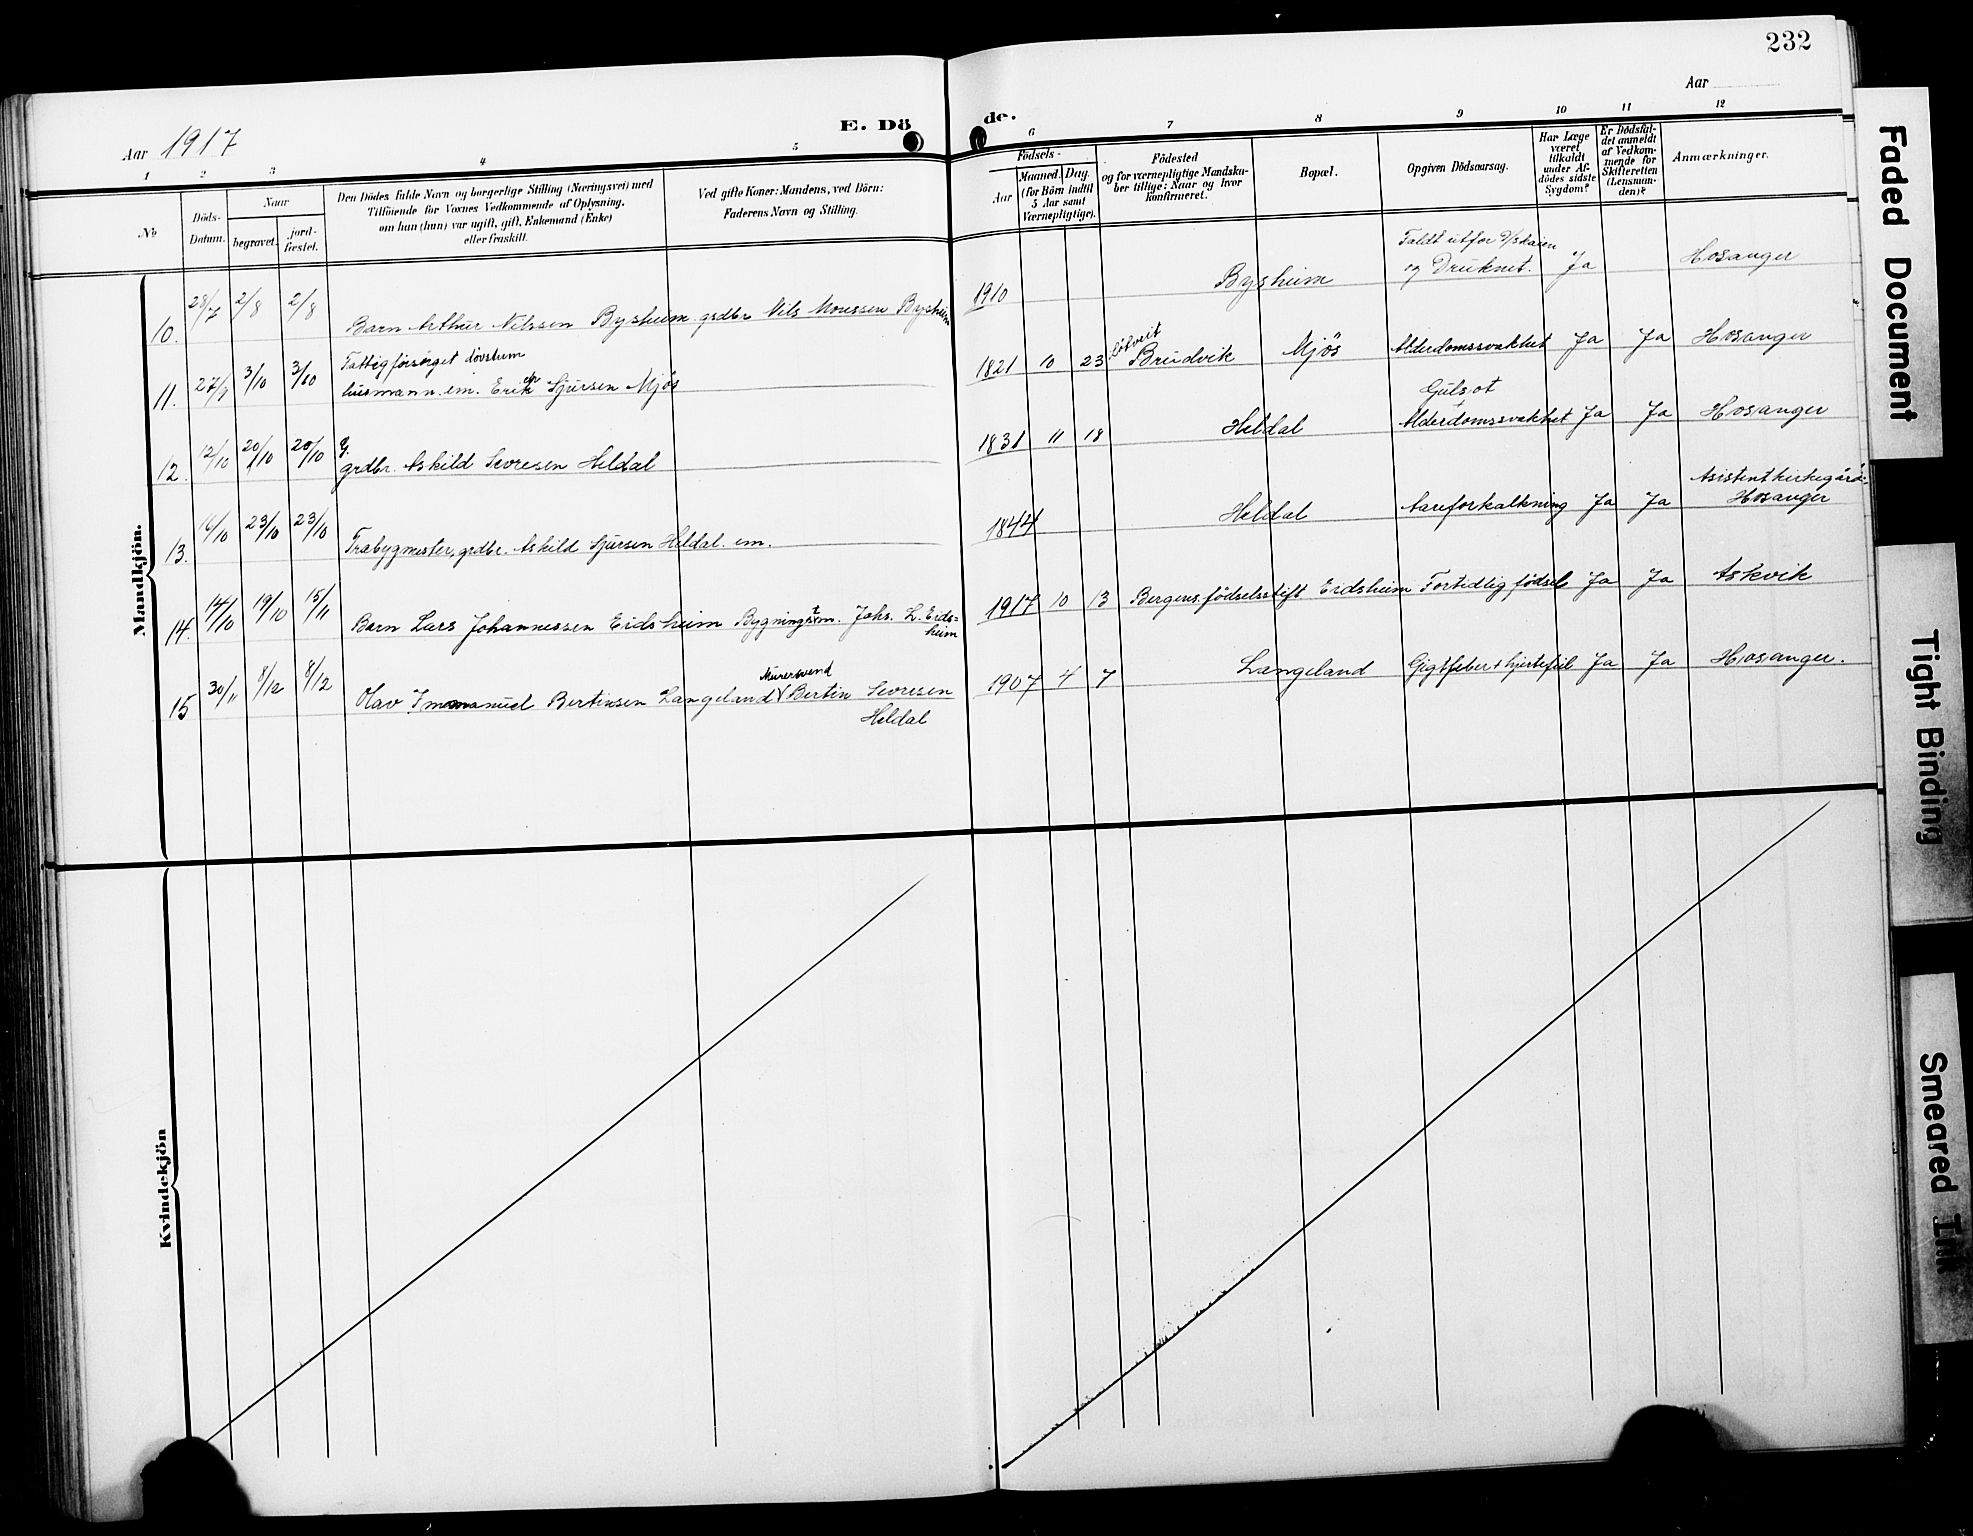 232
Aar
Aar 1917
E. Dö
de.
1 2 3 4 5 6 7 8 9 10 11 12
No
Döds-
Datum.
Naar
begravet.
jord-
fæstet.
Den Dödes fulde Navn og borgerlige Stilling (Næringsvei) med
Tilföiende for Voxnes Vedkommende af Oplysning,
om han (hun) var ugift, gift, Enkemand (Enke)
eller fraskilt.
Ved gifte Koner: Mandens, ved Börn:
Faderens Navn og Stilling.
Födsels-
Aar
Maaned. Dag.
(for Börn indtil
5 Aar samt
Værnepligtige).
Födested
og for værnepligtige Mandska-
ber tillige: Naar og hvor
konfirmeret.
Bopæl.
Opgiven Dödsaarsag.
Har Læge
været
tilkaldt
under Af-
dödes sidste
Sygdom?
Er Dödsfal-
det anmeldt
af Vedkom-
mende for
Skifteretten
(Lensman-
den)?
Anmærkninger.
Mandkjön.
10. 28/7 2/8 2/8 Barn Arthur Nilssen Bysheim grdbr Nils Monssen Bysheim 1910 Bysheim Faldt utfor D/skaien
og Druknet. Ja Hosanger
Fattigforsörget dövstum
11. 27/9 3/10 3/10 husmann. em. Erik Sjursen Mjös 1821 10 23 Brudvik Mjös Alderdomssvakhet Ja Ja Hosanger
Gulsot
12. 12/10 20/10 20/10 G.
grdbr. Askild Sevresen Heldal 1831 11 18 Heldal Alderdomssvakhet Ja Ja Hosanger
Asistentkirkegård
13. 16/10 23/10 23/10 Træbygmester, grdbr. Askild Sjursen Heldal. em. 1844 Heldal Aareforkalkning Ja Ja Hosanger
14. 14/10 19/10 15/11 Barn Lars Johannessen Eidsheim Bygningst m. Johs. L. Eids=
heim 1917 10 13 Bergens.födselsstift Eidsheim Fortidlig födsel Ja Ja Askvik
Murersvend
15 30/11 8/12 8/12 Olav Immanuel Bertinsen Langeland Bertin Sevresen
Heldal 1907 4 7 Langeland Gigtfeber + hjertefeil Ja Ja Hosanger.
Kvindekjön
Faded Document
Tight Binding
Smeared Ink